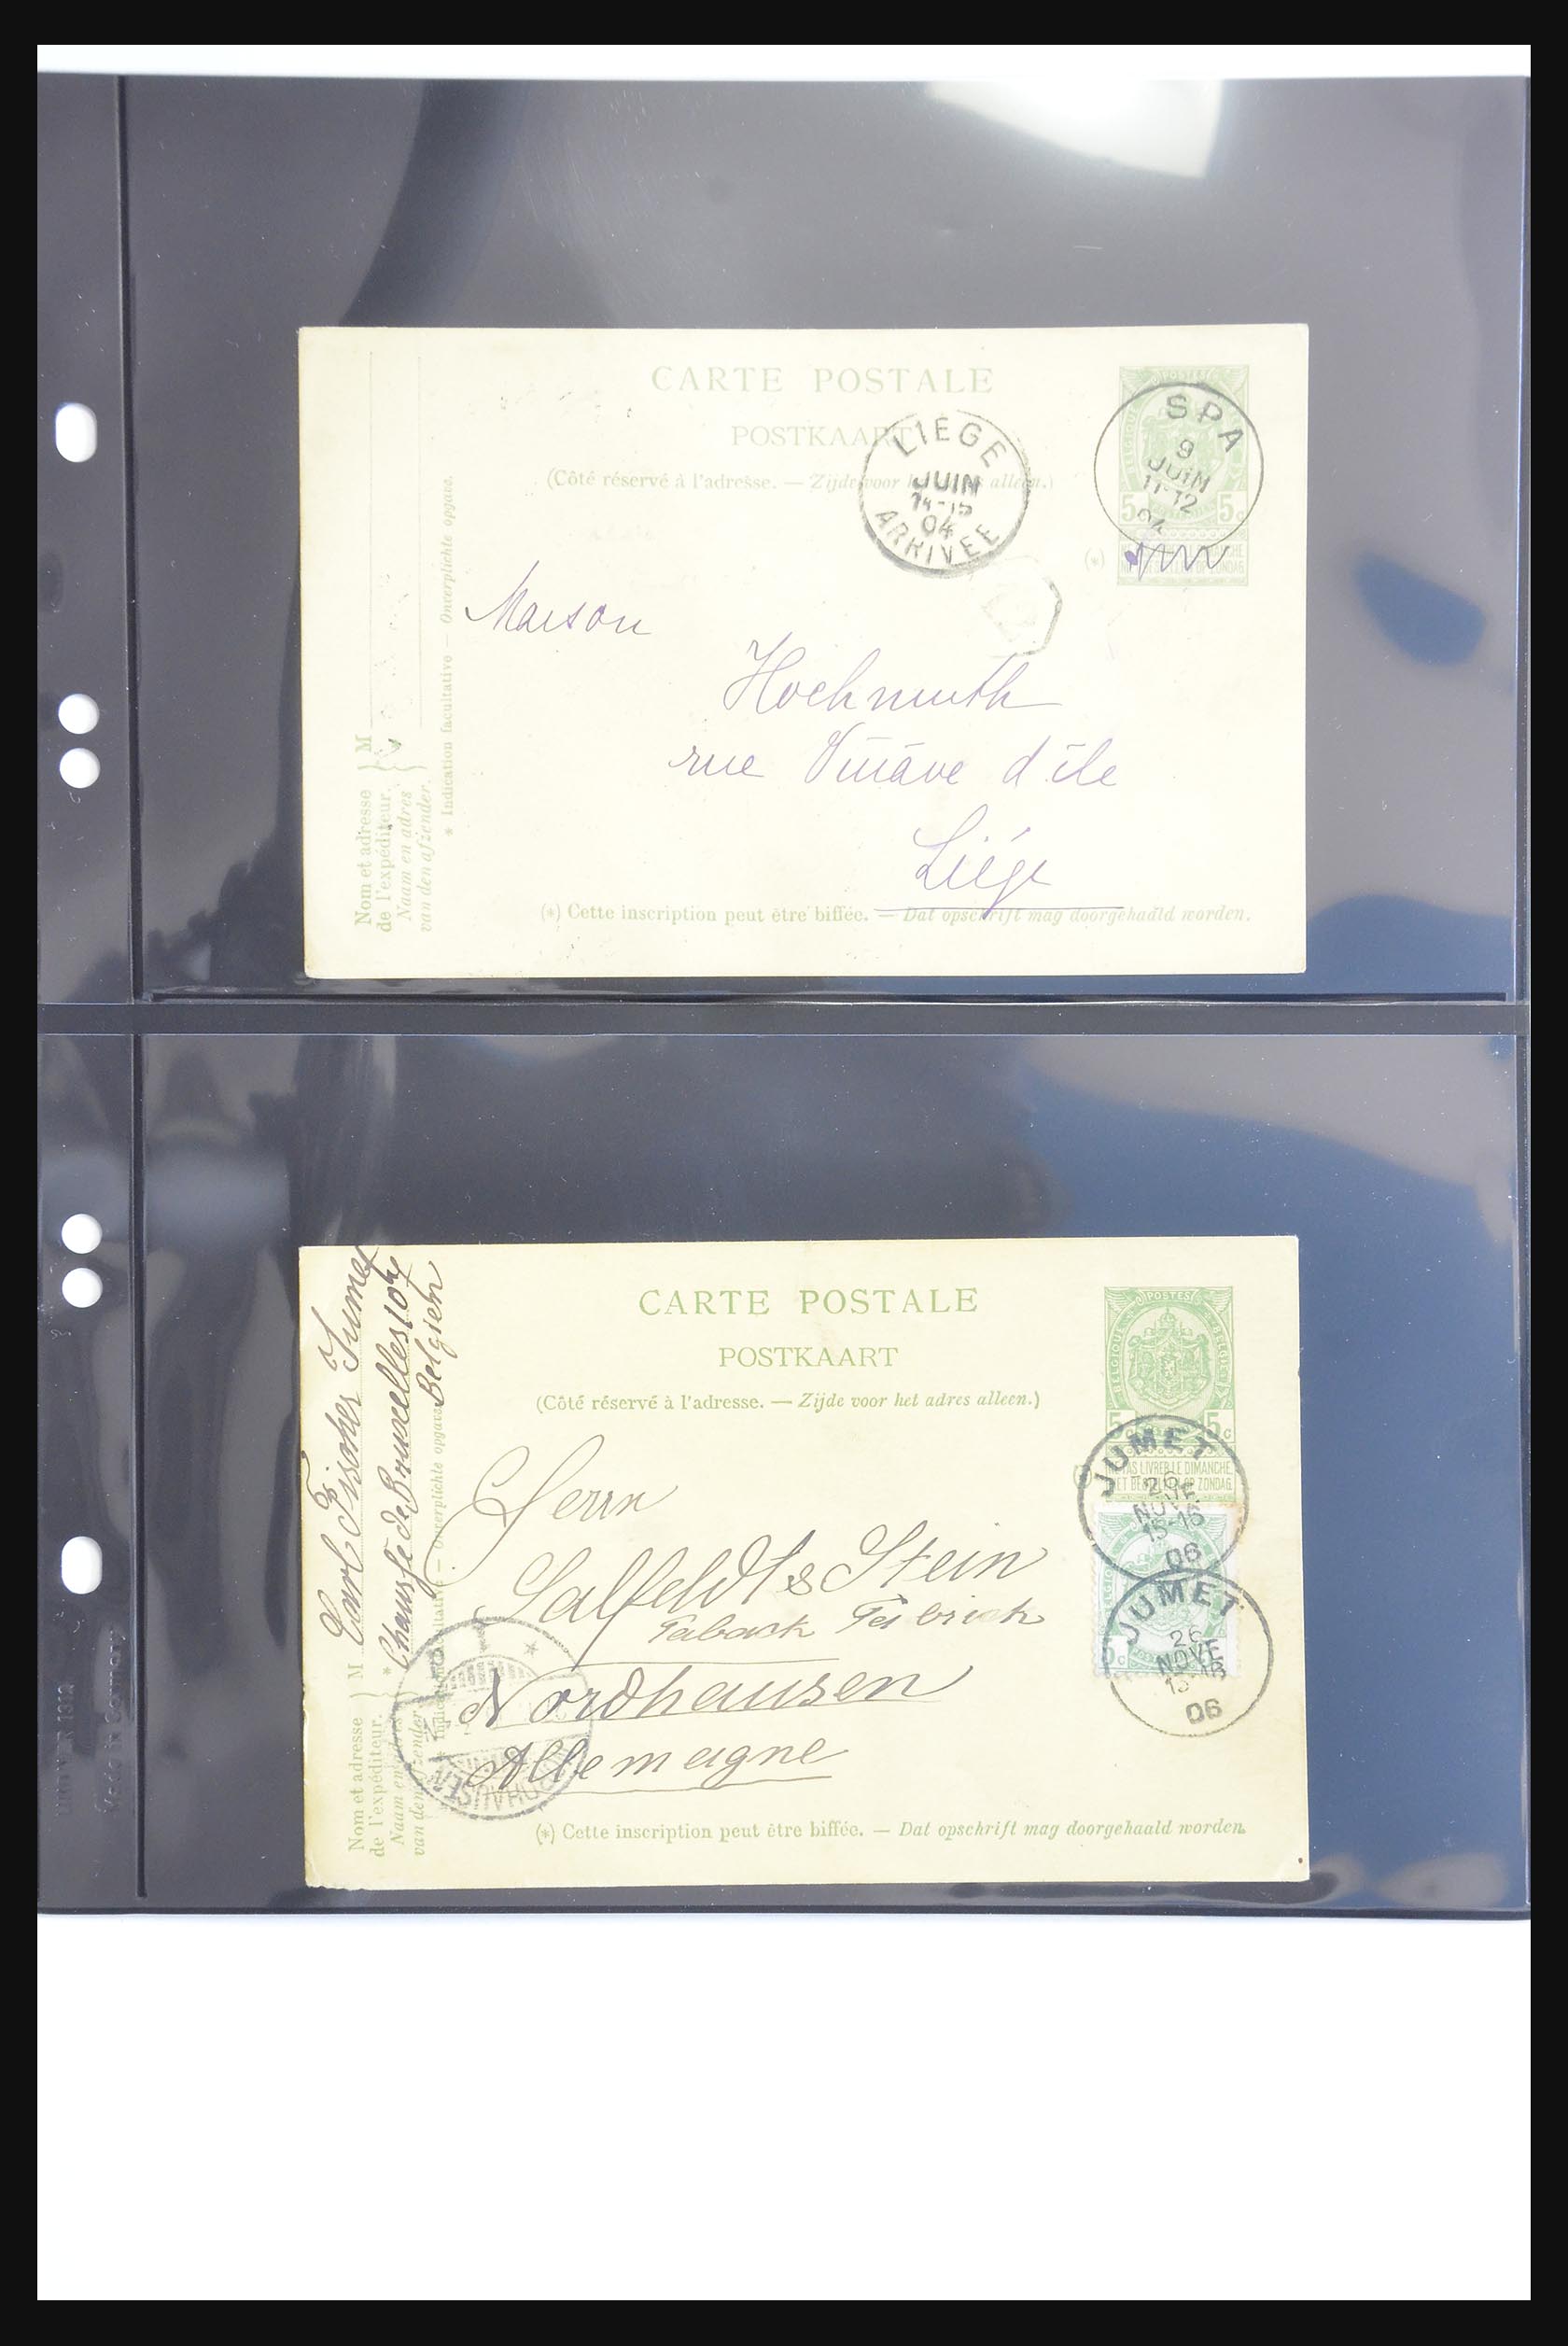 CARTE POSTALE
POSTKAART
(Côté réservé à l'adresse. — Zijde voor het adres alleen.)
POSTES
5c 5c
SPA
9
JUIN
11-12
04
LIEGE
JUIN
14-15
04
ARRIVEE
(*)
Maison
Hochmuth
rue Vinâve d'île
Liége
Nom et adresse
de l'expéditeur.
M
Naam en adres
van den afzender.
* Indication facultative — Onverplichte opgave.
(*) Cette inscription peut être biffée. — Dat opschrift mag doorgehaald worden.
CARTE POSTALE
POSTKAART
(Côté réservé à l'adresse. — Zijde voor het adres alleen.)
POSTES
BELGIQUE BELGIË
5c 5c
NE PAS LIVRER LE DIMANCHE
NIET BESTELLEN OP ZONDAG
JUMET
26
NOVE
15-16
06
JUMET
26
NOVE
15-16
06
Herrn
Salfeldt & Stein
Taback Fabrick
Nordhausen
Allemagne
NORDHAUSEN
Carl Fischer Jumet
Chaussée de Bruxelles 104
Belgien
Nom et adresse
de l'expéditeur.
M
Naam en adres
van den afzender.
* Indication facultative — Onverplichte opgave.
(*) Cette inscription peut être biffée. — Dat opschrift mag doorgehaald worden.
1312
Made in Germany